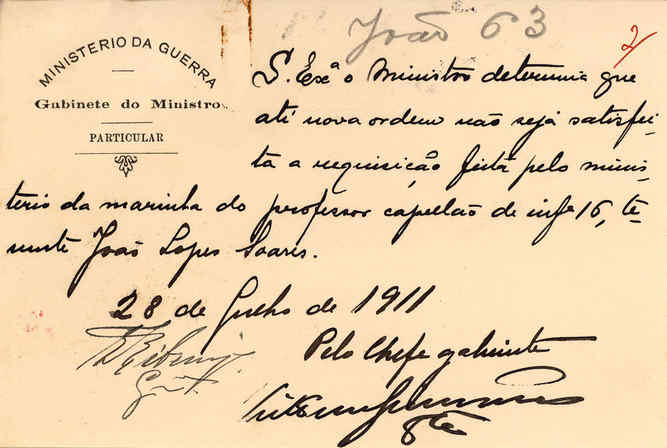 João 63
2
MINISTERIO DA GUERRA
Gabinete do Ministro
PARTICULAR
S. Exª o Ministro determina que
até nova ordem não seja satisfei-
ta a requisição feita pelo minis-
terio da marinha do professor capellão de infª 16, te-
nente João Lopes Soares.
28 de Julho de 1911
Pelo Chefe gabinete